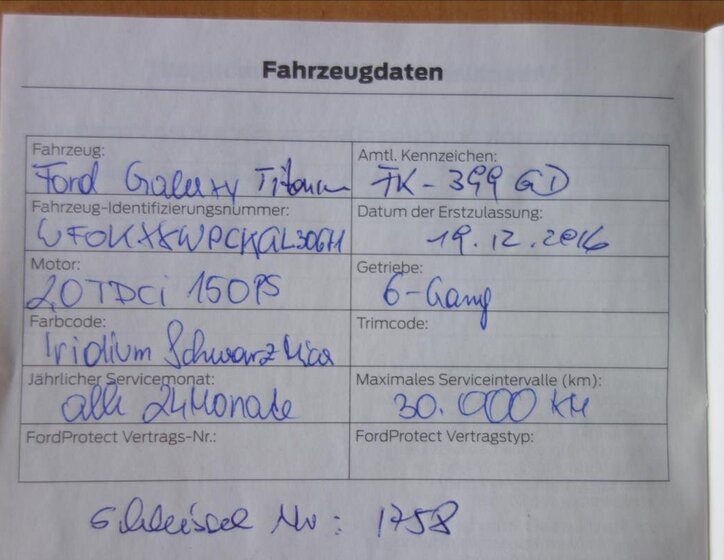 Fahrzeugdaten
Fahrzeug: Amtl. Kennzeichen:
Ford Galaxy Titanium FK-399 GD
Fahrzeug-Identifizierungsnummer: Datum der Erstzulassung:
19.12.2016
Motor: Getriebe:
2,0 TDCi 150PS 6-Gang
Farbcode: Trimcode:
Iridium Schwarz Mica
Jährlicher Servicemonat: Maximales Serviceintervalle (km):
alle 24 Monate 30.000 KM
FordProtect Vertrags-Nr.: FordProtect Vertragstyp:
Nr: 1758